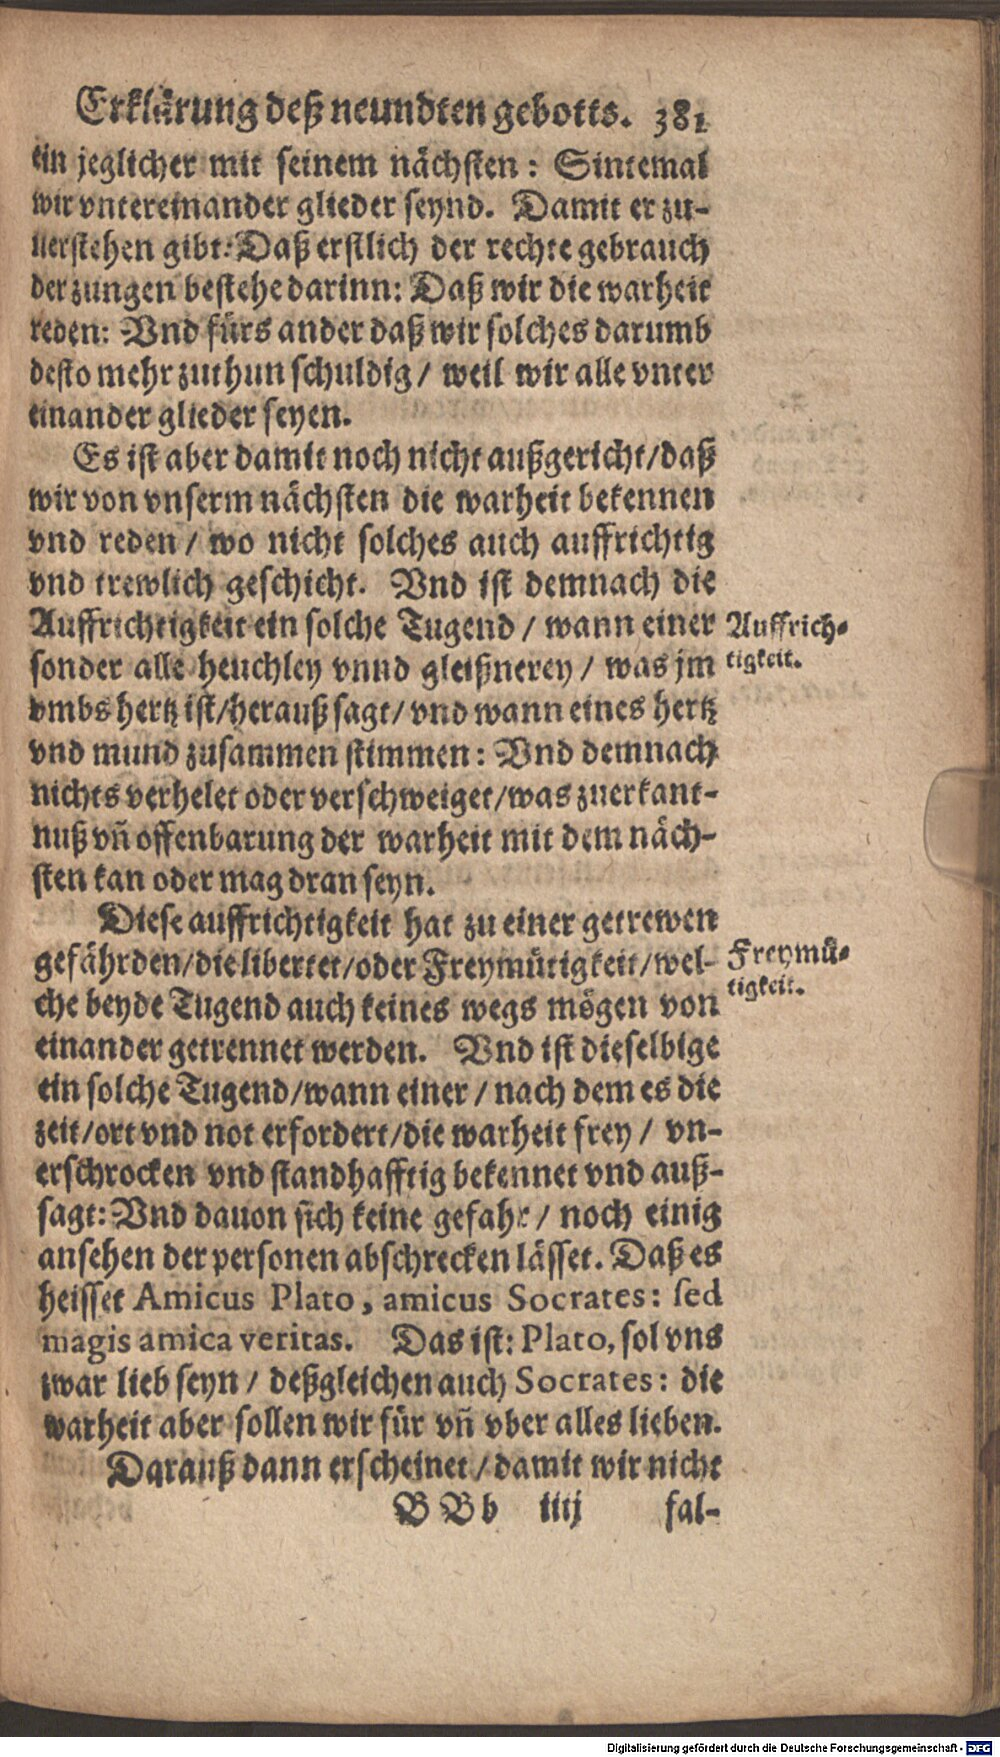 Erklärung deß neundten gebotts. 381
ein jeglicher mit seinem nächsten: Sintemal
wir vntereinander glieder seynd. Damit er zu-
uerstehen gibt: Daß erstlich der rechte gebrauch
der zungen bestehe darinn: Daß wir die warheit
reden: Vnd fürs ander daß wir solches darumb
desto mehr zuthun schuldig / weil wir alle vnter
einander glieder seyen.
Es ist aber damit noch nicht außgericht/daß
wir von vnserm nächsten die warheit bekennen
vnd reden / wo nicht solches auch auffrichtig
vnd trewlich geschicht. Vnd ist demnach die
Auffrichtigkeit ein solche Tugend / wann einer
sonder alle heuchley vnnd gleißnerey / was jm
vmbs hertz ist/herauß sagt/ vnd wann eines hertz
vnd mund zusammen stimmen: Vnd demnach
nichts verhelet oder verschweiget/was zuerkant-
nuß vñ offenbarung der warheit mit dem näch-
sten kan oder mag dran seyn.
Auffrich-
tigkeit.
Diese auffrichtigkeit hat zu einer getrewen
gefährden/die libertet/oder Freymütigkeit/wel-
che beyde Tugend auch keines wegs mögen von
einander getrennet werden. Vnd ist dieselbige
ein solche Tugend/wann einer / nach dem es die
zeit/ort vnd not erfordert/die warheit frey / vn-
erschrocken vnd standhafftig bekennet vnd auß-
sagt: Vnd dauon sich keine gefahr / noch einig
ansehen der personen abschrecken lässet. Daß es
heisset Amicus Plato, amicus Socrates: sed
magis amica veritas. Das ist: Plato, sol vns
zwar lieb seyn / deßgleichen auch Socrates: die
warheit aber sollen wir für vñ vber alles lieben.
Freymü-
tigkeit.
Darauß dann erscheinet / damit wir nicht
B B b iiij fal-
Digitalisierung gefördert durch die Deutsche Forschungsgemeinschaft - DFG